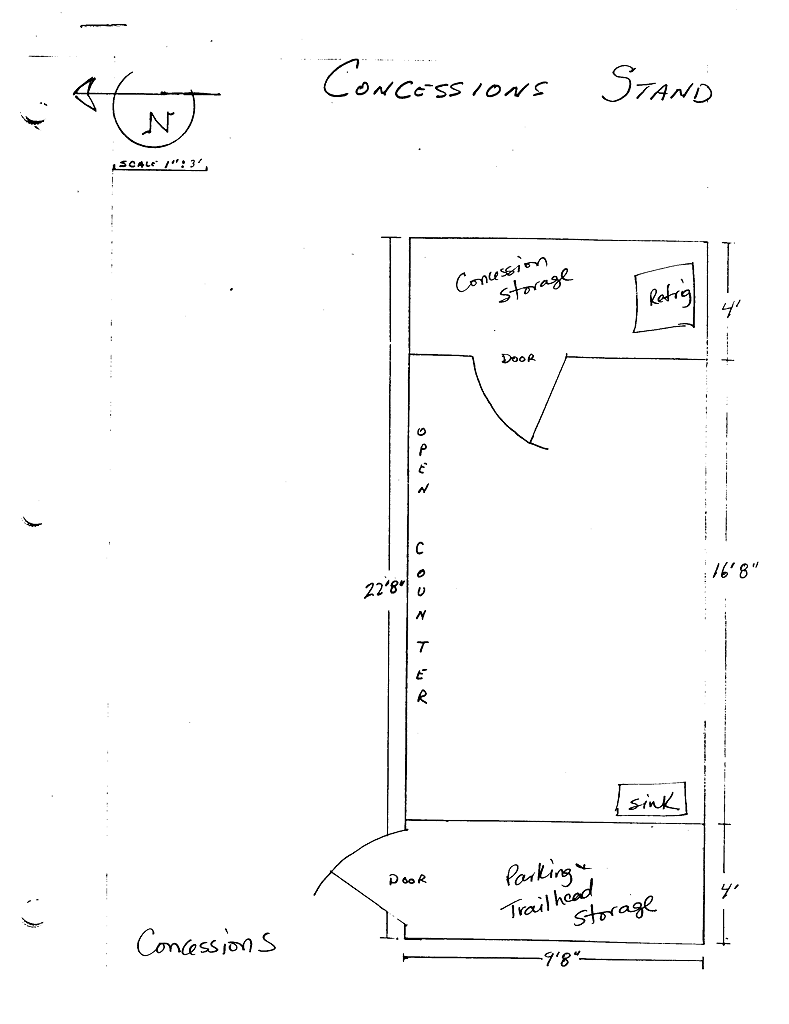 CONCESSIONS STAND
N
SCALE 1": 3'
Concession
Storage
Refrig
4'
DOOR
OPEN COUNTER
16'8"
22'8"
sink
DOOR
Parking &
Trailhead
Storage
4'
Concessions
9'8"